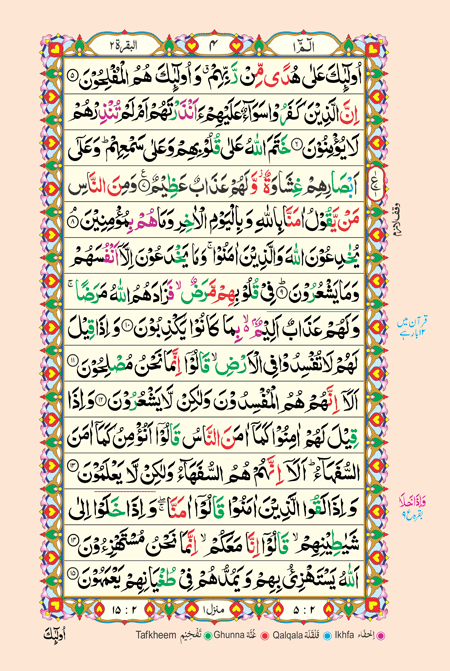 البقرة ٢ ٤ الٓمّٓ ١
اُولٰٓئِكَ عَلٰى هُدًى مِّنۡ رَّبِّهِمۡ ۙ وَاُولٰٓئِكَ هُمُ الۡمُفۡلِحُوۡنَ ۝٥
اِنَّ الَّذِيۡنَ كَفَرُوۡا سَوَآءٌ عَلَيۡهِمۡ ءَاَنۡذَرۡتَهُمۡ اَمۡ لَمۡ تُنۡذِرۡهُمۡ
لَا يُؤۡمِنُوۡنَ ۝٦ خَتَمَ اللّٰهُ عَلٰى قُلُوۡبِهِمۡ وَعَلٰى سَمۡعِهِمۡ ؕ وَعَلٰٓى
اَبۡصَارِهِمۡ غِشَاوَةٌ ؗ وَّلَهُمۡ عَذَابٌ عَظِيۡمٌ ۝٧ وَمِنَ النَّاسِ
مَنۡ يَّقُوۡلُ اٰمَنَّا بِاللّٰهِ وَبِالۡيَوۡمِ الۡاٰخِرِ وَمَا هُمۡ بِمُؤۡمِنِيۡنَ ۝٨
يُخٰدِعُوۡنَ اللّٰهَ وَالَّذِيۡنَ اٰمَنُوۡا ۚ وَمَا يَخۡدَعُوۡنَ اِلَّاۤ اَنۡفُسَهُمۡ
وَمَا يَشۡعُرُوۡنَ ۝٩ فِىۡ قُلُوۡبِهِمۡ مَّرَضٌ ۙ فَزَادَهُمُ اللّٰهُ مَرَضًا ۚ
وَلَهُمۡ عَذَابٌ اَلِيۡمٌۢ ۙ بِمَا كَانُوۡا يَكۡذِبُوۡنَ ۝١٠ وَاِذَا قِيۡلَ
لَهُمۡ لَا تُفۡسِدُوۡا فِى الۡاَرۡضِ ۙ قَالُوۡۤا اِنَّمَا نَحۡنُ مُصۡلِحُوۡنَ ۝١١
اَلَاۤ اِنَّهُمۡ هُمُ الۡمُفۡسِدُوۡنَ وَلٰكِنۡ لَّا يَشۡعُرُوۡنَ ۝١٢ وَاِذَا
قِيۡلَ لَهُمۡ اٰمِنُوۡا كَمَاۤ اٰمَنَ النَّاسُ قَالُوۡۤا اَنُؤۡمِنُ كَمَاۤ اٰمَنَ
السُّفَهَآءُ ؕ اَلَاۤ اِنَّهُمۡ هُمُ السُّفَهَآءُ وَلٰكِنۡ لَّا يَعۡلَمُوۡنَ ۝١٣
وَاِذَا لَقُوا الَّذِيۡنَ اٰمَنُوۡا قَالُوۡۤا اٰمَنَّا ۖۚ وَاِذَا خَلَوۡا اِلٰى
شَيٰطِيۡنِهِمۡ ۙ قَالُوۡۤا اِنَّا مَعَكُمۡ ۙ اِنَّمَا نَحۡنُ مُسۡتَهۡزِءُوۡنَ ۝١٤
اَللّٰهُ يَسۡتَهۡزِئُ بِهِمۡ وَيَمُدُّهُمۡ فِىۡ طُغۡيَانِهِمۡ يَعۡمَهُوۡنَ ۝١٥
ع
وقف لازم
قرآن میں
۱۲ بار ہے
وَاِذَا خَلَا
بقرہ ع ۹
١٥ : ٢ منزل ١ ٥ : ٢
اُولٰٓئِكَ
Tafkheem تَفْخِيْم Ghunna غُنَّه Qalqala قَلْقَلَه Ikhfa اِخفَاء